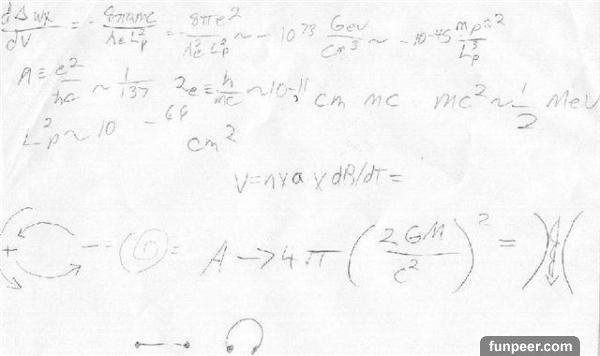 dΔwx/dV = -8πamc/λe L²p = -8πe²/λ²e L²p ~ -10⁷³ Gev/cm³ ~ -10⁻⁴⁵ mpc²/L³p
A ≡ e²/ħc ~ 1/137 λe ≡ ħ/mc ~10⁻¹¹ cm mc mc² ~ 1/2 MeV
L²p ~ 10⁻⁶⁶ cm²
V=nxaxdB/dT=
+ — = A → 4π (2GM/c²)² = )(
funpeer.com